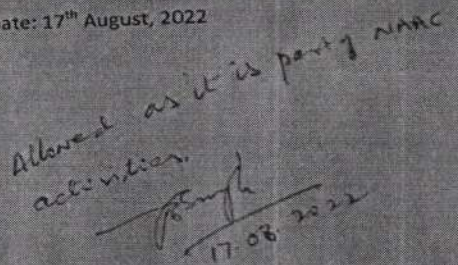 ate: 17th August, 2022
Allowed as it is part of NAAC
activities.
17.08.2022